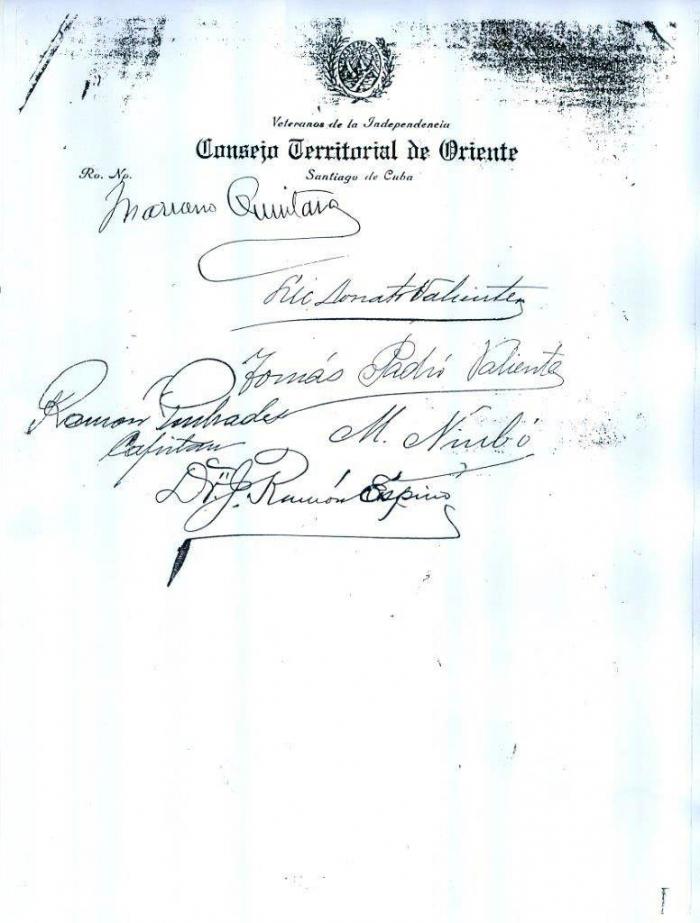 Veteranos de la Independencia
Consejo Territorial de Oriente
Santiago de Cuba
Ro. No.
Mariano Quintana
Lic. Donato Valiente
Tomás Padró Valiente
Ramón
Capitan
M. Nimbó
Dr. J. Ramón Espino